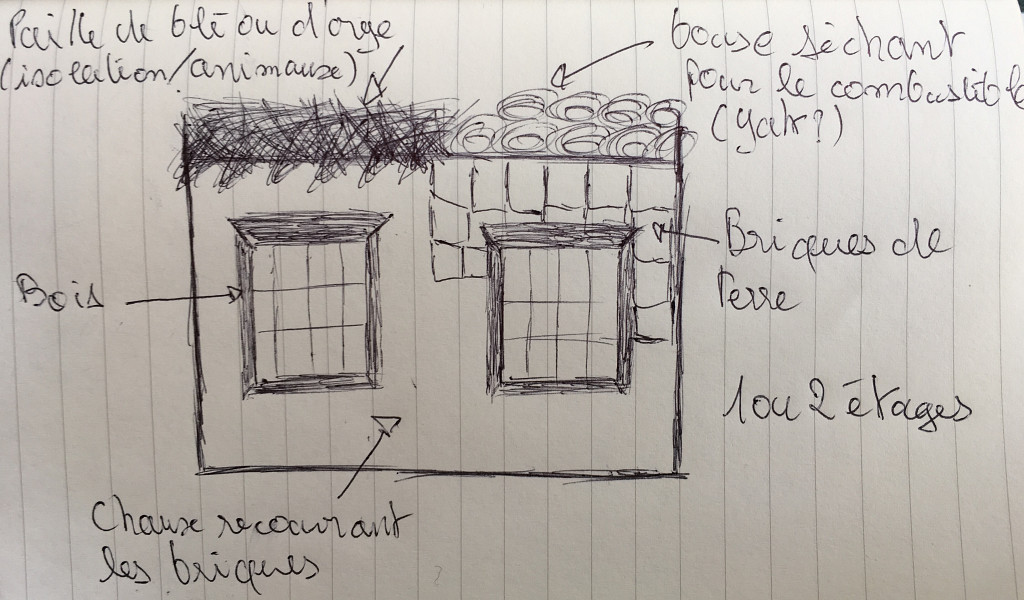 Paille de blé ou d'orge
(isolation/animaux)
bouse séchant
pour le combustible
(Yak?)
Briques de
Terre
Bois
1 ou 2 étages
Chaux recouvrant
les briques